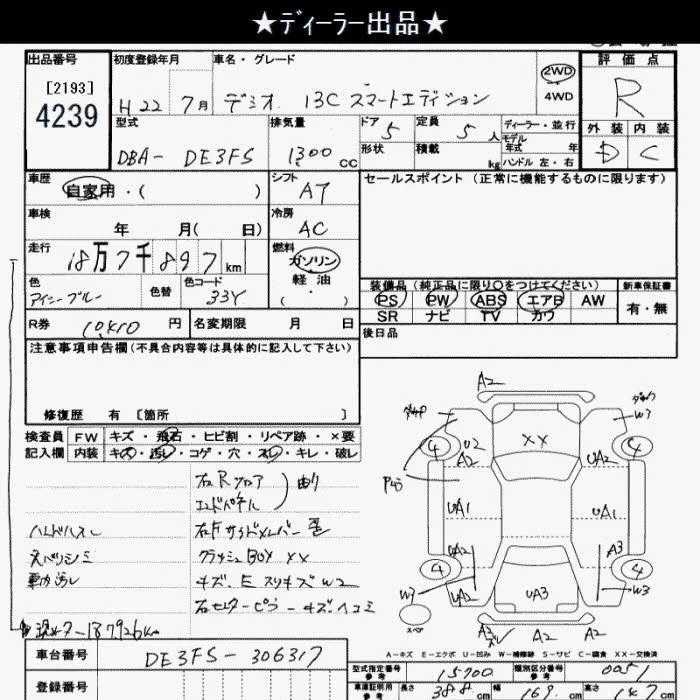 ★ディーラー出品★
出品番号
[2193]
4239
初度登録年月
H22 7月
車名・グレード
デミオ 13C スマートエディション
2WD
4WD
評価点
R
外装 内装
D C
型式
DBA- DE3FS
排気量
1300 cc
ドア 5
形状
定員 5 人
積載 kg
ディーラー・並行
モデル年式 年
ハンドル 左・右
車歴
自家用・( )
シフト
AT
セールスポイント (正常に機能するものに限ります)
車検
年 月( 日)
冷房
AC
走行
18万7千897 km
燃料
ガソリン
軽油
( ・ )
色
アイシーブルー
色替
色コード
33Y
装備品 (純正品に限り○をつけてください)
PS PW ABS エアB AW
SR ナビ TV カワ
新車保証書
有・無
R券 10410 円
名変期限 月 日
後日品
注意事項申告欄(不具合内容等は具体的に記入して下さい)
修復歴 有 [箇所 ]
検査員
記入欄
FW キズ・飛石・ヒビ割・リペア跡・×要
内装 キズ・汚レ・コゲ・穴・スレ・キレ・破レ
右Rフロア
エンドパネル
曲り
ハンドルスレ
右Fサイドメンバー 歪
天バリシミ
クラッシュBOX XX
キズ.E スリキズ W2
右センターピラーキズヘコミ
現メーター187926km
A2
W3
XX
4
4
U2
A2
UA2
P43
UA1
UA1
UA2
A3
4
4
W3
W3
UA3
スペア
A3
A2
A2
A-キズ E-エクボ U-凹み W-補修跡 S-サビ C-腐食 XX-交換済
車台番号
DE3FS-306317
登録番号
型式指定番号
参考
15700
類別区分番号
参考
0051
車庫証明用
参考
長さ 388 cm
幅 169 cm
高さ 147 cm